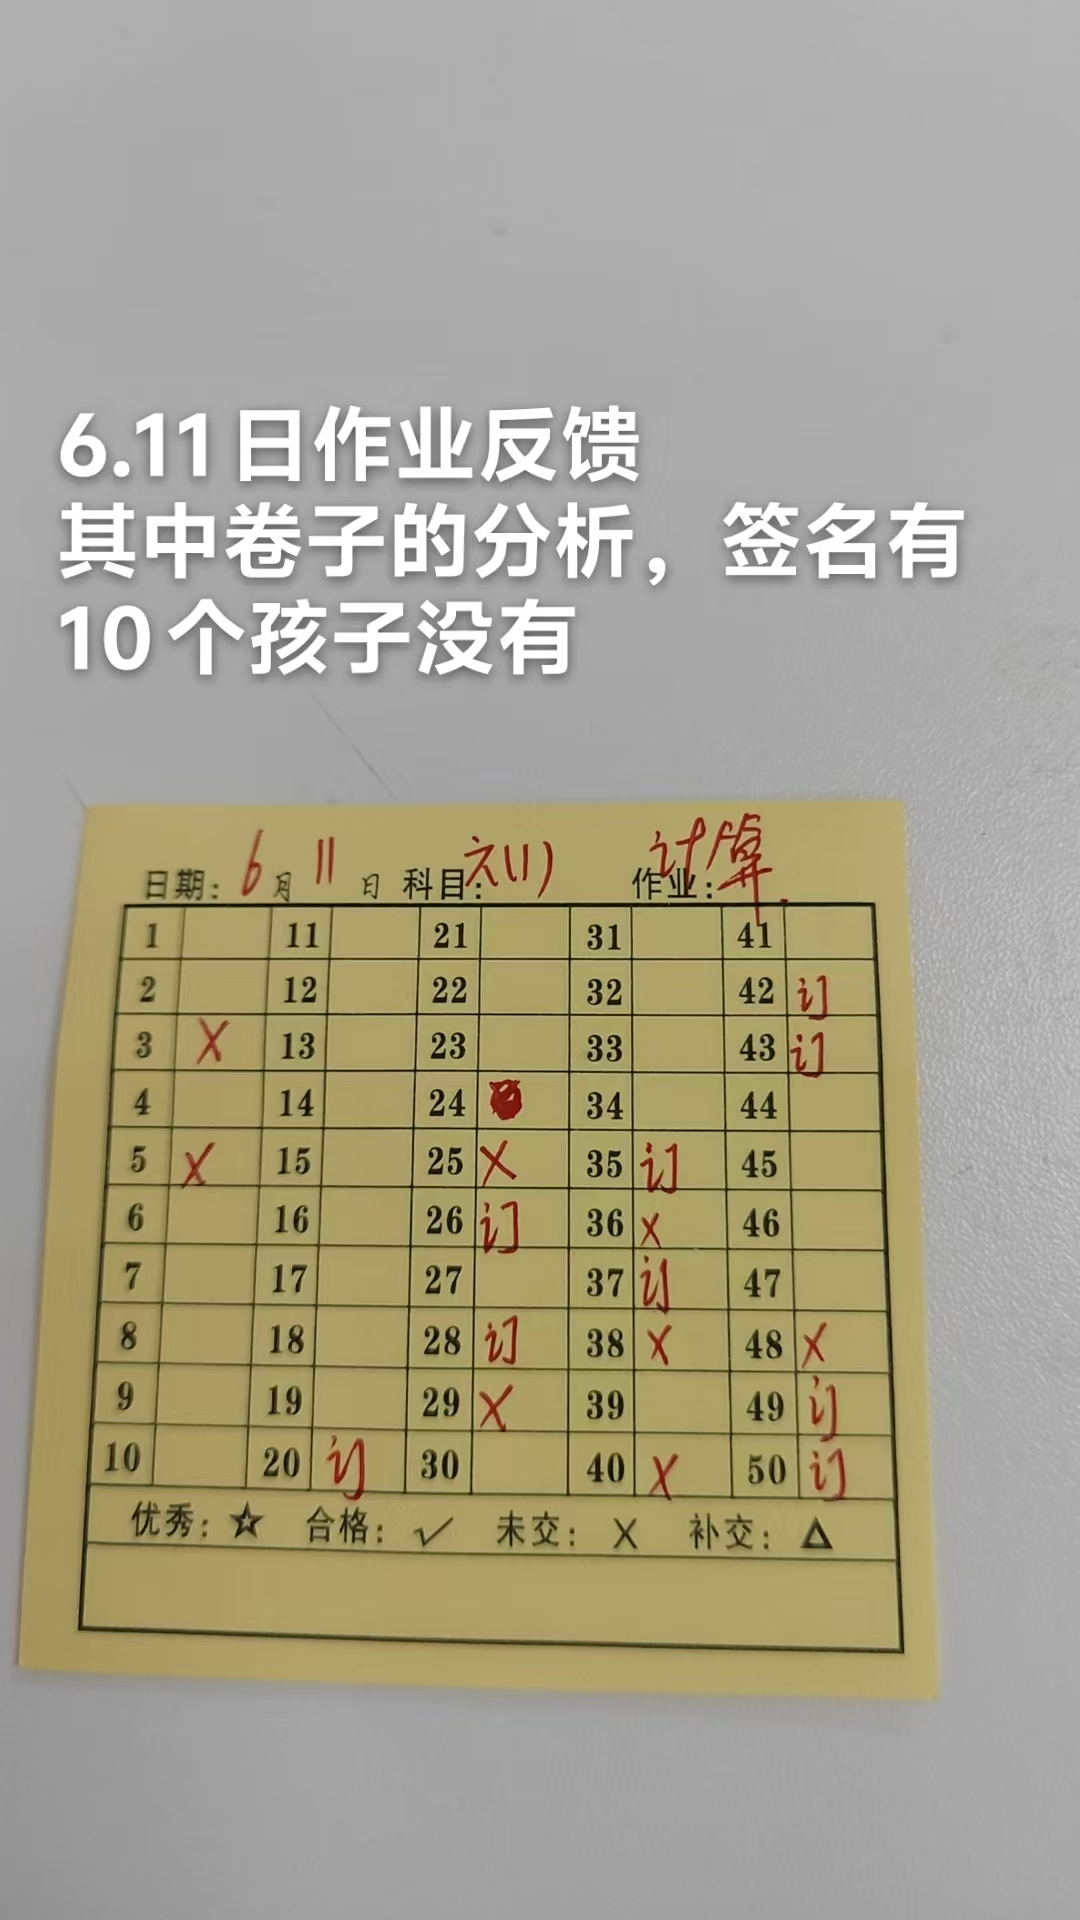 6.11日作业反馈
其中卷子的分析，签名有
10个孩子没有
日期：6月11日 科目：六(1) 作业：计算.
1 11 21 31 41
2 12 22 32 42 订
3 X 13 23 33 43 订
4 14 24 34 44
5 X 15 25 X 35 订 45
6 16 26 订 36 X 46
7 17 27 37 订 47
8 18 28 订 38 X 48 X
9 19 29 X 39 49 订
10 20 订 30 40 X 50 订
优秀：☆ 合格：✓ 未交：X 补交：△